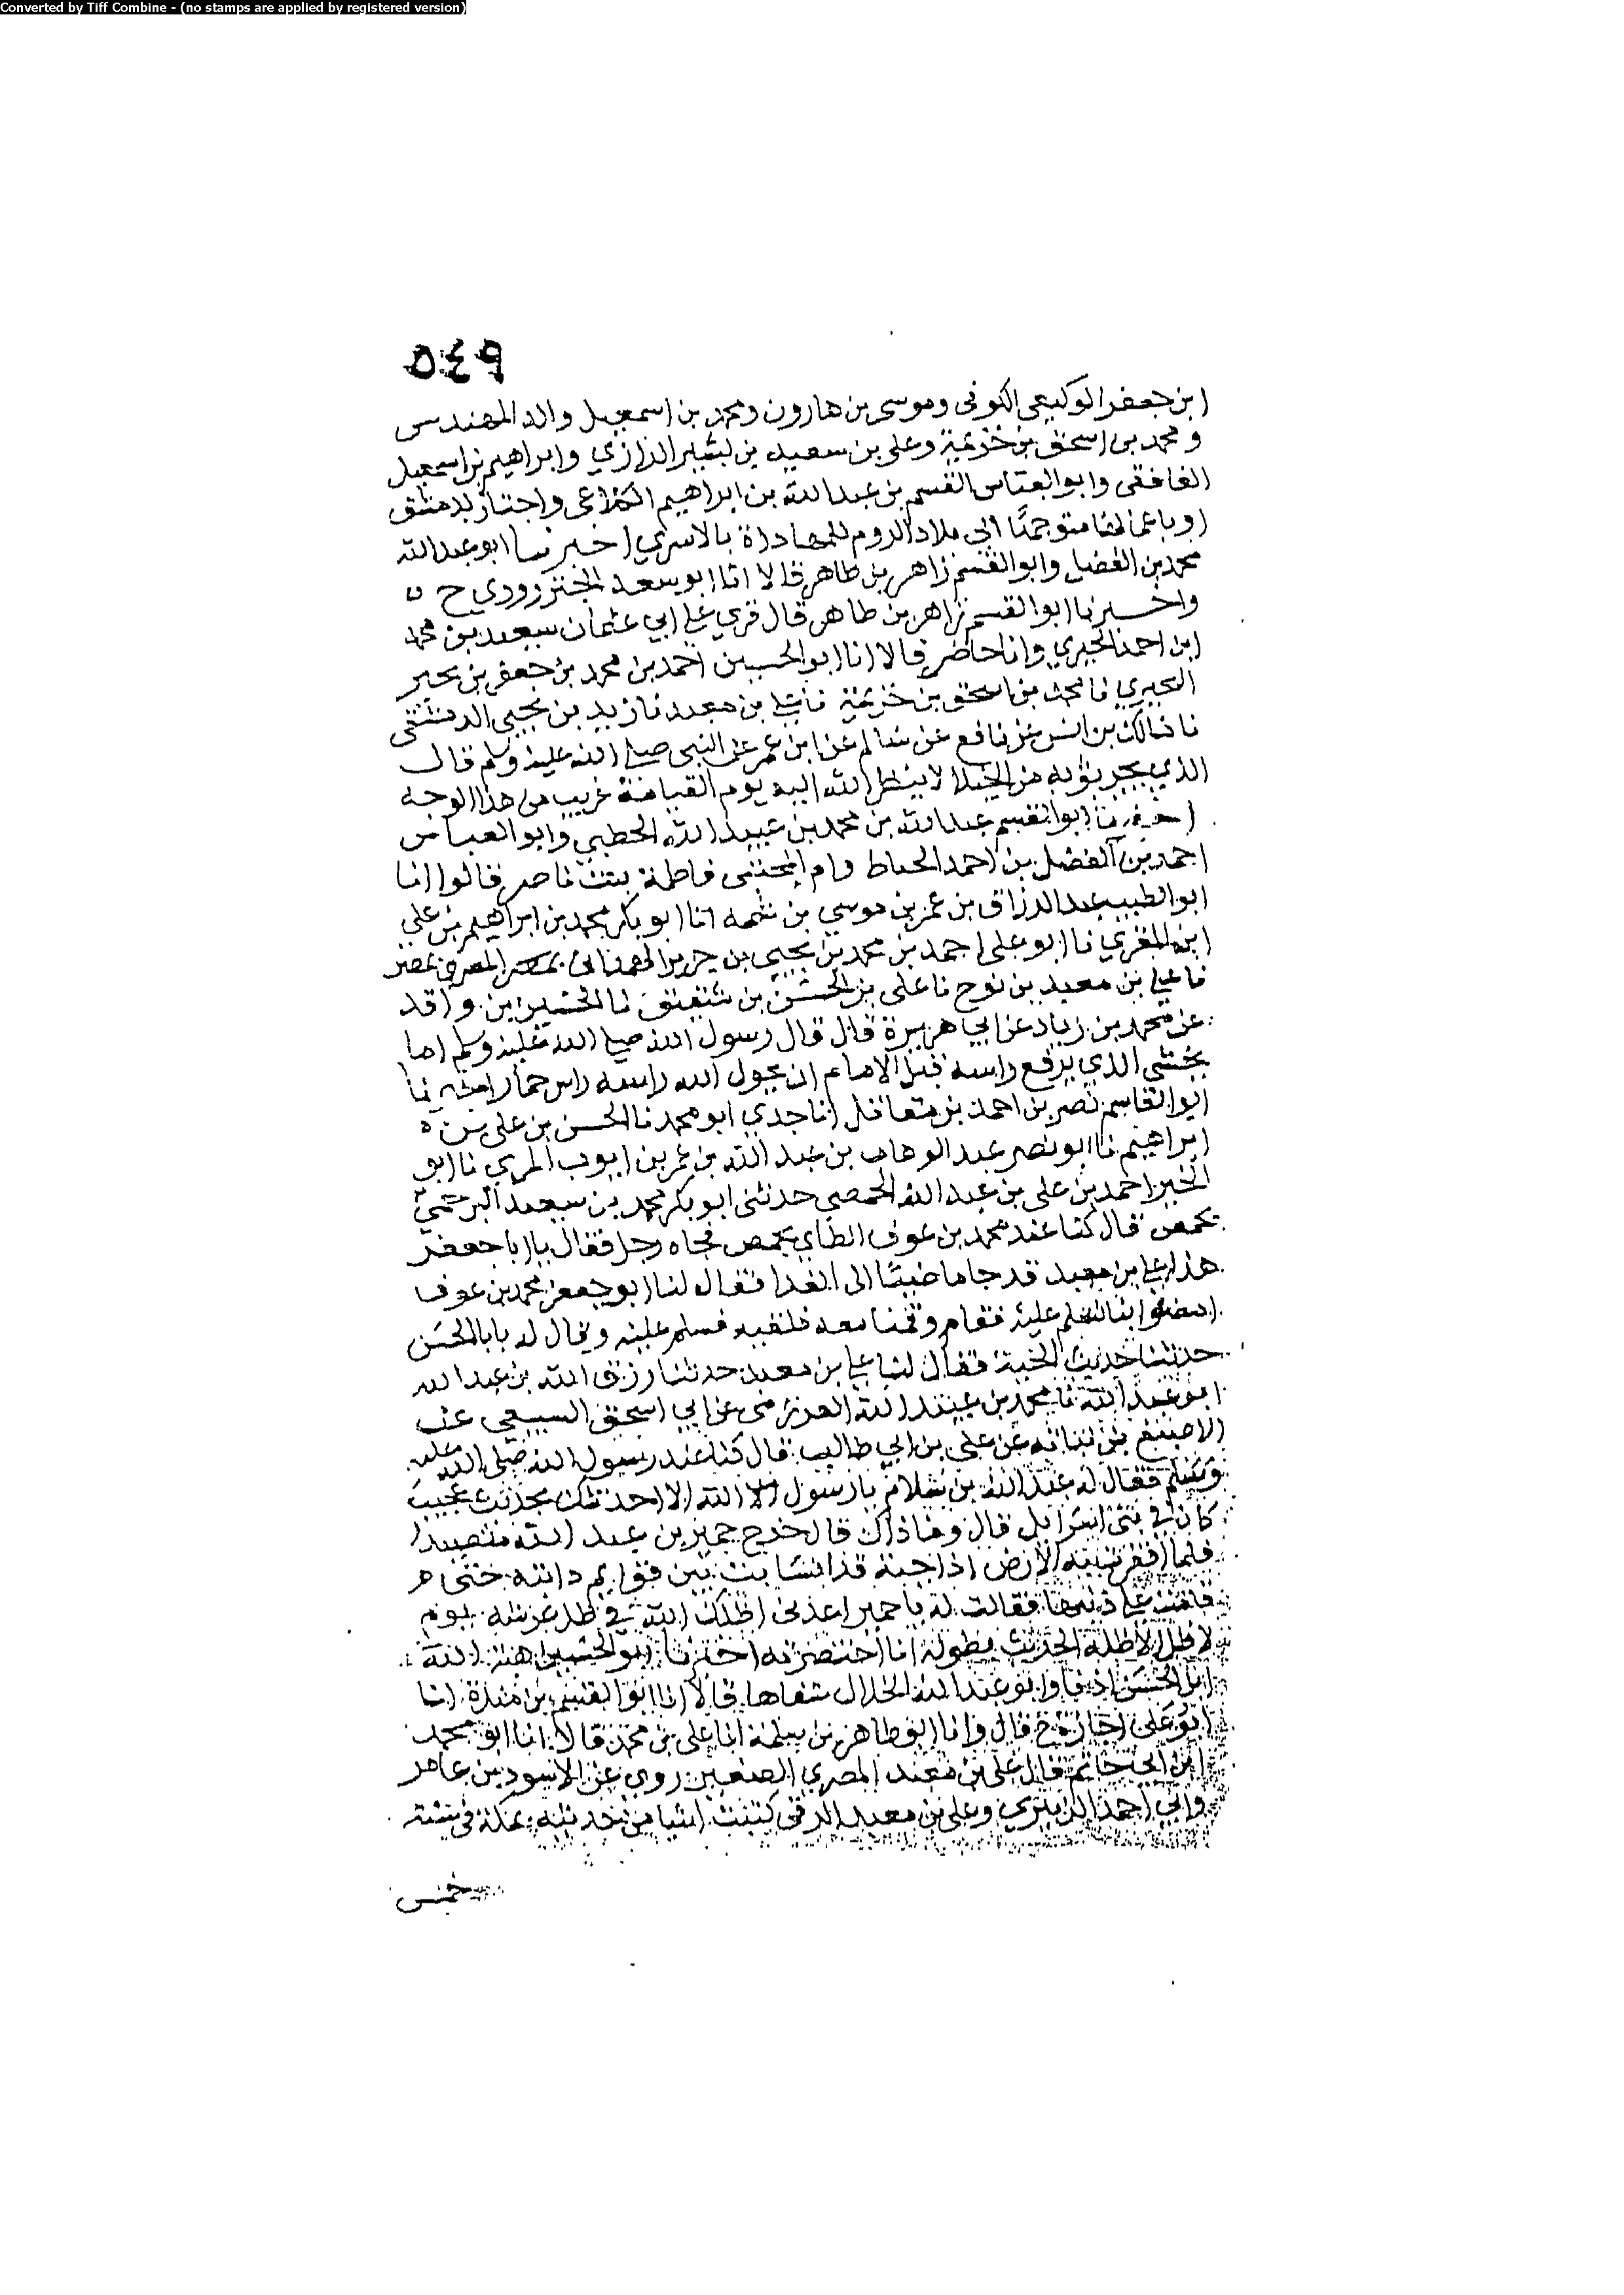 Converted by Tiff Combine - (no stamps are applied by registered version)
٥٤٩
ابن جعفر الوكيعي الكوفى وموسى بن هارون ومحمد بن اسمعيل والد المهندس
ومحمد بن اسحق بن خزيمة وعلى بن سعيد بن بشير الرازي وابراهيم بن اسمعيل
الغافقى وابو العباس القسم بن عبد الله بن ابراهيم الكلاعى واجتاز بدمشق
او باعمالها متوجها الى بلاد الروم للمفاداة بالاسري اخبرنا ابو عبد الله
محمد بن الفضل وابو القسم زاهر بن طاهر قالا انا ابو سعد الجنزرودي ح
واخبرنا ابو القسم زاهر بن طاهر قال قري على ابي عثمان سعيد بن محمد
ابن احمد الحيري وانا حاضر قالا انا ابو الحسين احمد بن محمد بن جعفر بن بحير
البحيري نا محمد بن اسحق بن خزيمة نا علي بن معبد نا زيد بن يحيى الدمشقى
نا مالك بن انس عن نافع عن سالم عن ابن عمر عن النبى صلى الله عليه وسلم قال
الذي يجر ثوبه من الخيلا لا ينظر الله اليه يوم القيامة غريب من هذا الوجه
اخبرنا ابو القسم عبد الله بن محمد بن عبيد الله الخطيبي وابو العباس
احمد بن الفضل بن احمد الخياط وام المجتبى فاطمة بنت ناصر قالوا انا
ابو الطيب عبد الرزاق بن عمر بن موسي بن شمه انا ابو بكر محمد بن ابراهيم بن علي
ابن المقري نا ابو على احمد بن محمد بن يحيى بن جرير الهمدانى المصري بمصر
نا علي بن معبد بن نوح نا على بن الحسن بن شقيق نا الحسين بن واقد
عن محمد بن زياد عن ابي هريرة قال قال رسول الله صلى الله عليه وسلم اما
يخشى الذي يرفع راسه قبل الامام ان يحول الله راسه راس حمار
ابو القاسم نصر بن احمد بن مقاتل انا جدي ابو محمد نا الحسن بن على بن
ابراهيم نا ابو نصر عبد الوهاب بن عبد الله بن عمر بن ايوب المري نا ابو
الخير احمد بن على بن عبد الله الحمصي حدثنى ابو بكر محمد بن سعيد
بحمص قال كنا عند محمد بن عوف الطاي بحمص فجاه رجل فقال يا ابا جعفر
هذا علي بن معبد قد جا ماضيا الى الغدا فقال لنا ابو جعفر محمد بن عوف
امضوا بنا نسلم عليه فقام وقمنا معه فلقيه فسلم عليه وقال له يابا الحسن
حدثنا حديث الحية فقال لنا علي بن معبد حدثنا رزق الله بن عبد الله
ابو عبد الله نا محمد بن عبيد الله العرزمى عن ابي اسحق السبيعي عن
الاصبغ بن نباته عن على بن ابي طالب قال كنا عند رسول الله صلى الله عليه
وسلم فقال له عبد الله بن سلام يا رسول الله الا احدثك بحديث عجيب
كان في بنى اسرايل قال وما ذاك قال خرج حمير بن عبد الله متصيدا
فلما اقفرت به الارض اذا حية قد انسابت بين قوايم دابته حتى
قامت على ذنبها فقالت له يا حمير اعذنى اظلك الله في ظل عرشه يوم
لا ظل الا ظله الحديث بطوله انا اختصرته اخبرنا ابو الحسين هبة الله
ابن الحسن اذنا وابو عبد الله الخلال شفاها قالا انا ابو القسم بن مندة انا
ابو على اجازة ح قال وانا ابو طاهر بن سلمة انا على بن محمد قالا انا ابو محمد
ابن ابي حاتم قال على بن معبد المصري الصغير روى عن الاسود بن عامر
وابي احمد الزبيري وعلى بن معبد الرقى كتبت شيا من حديثه بمكة في سنة
خمس